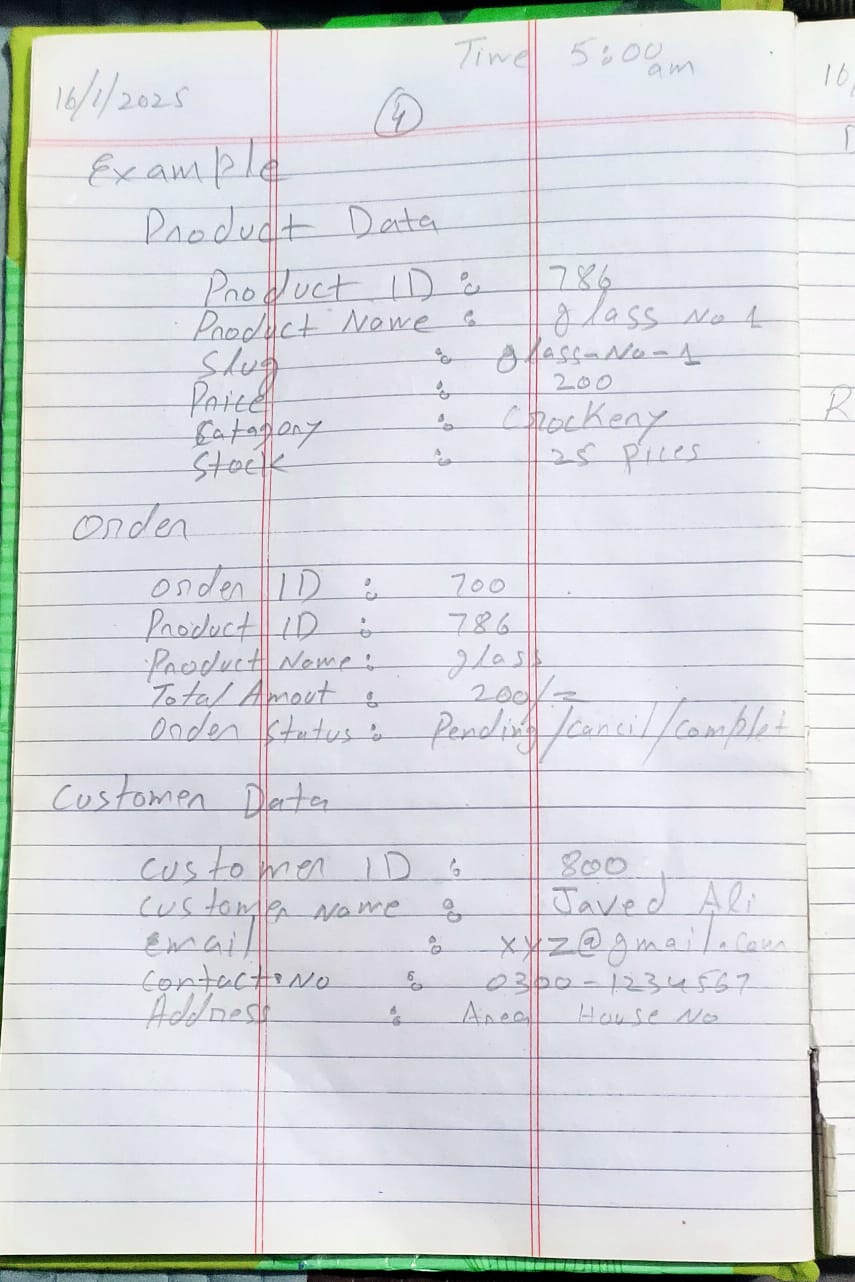 Time 5:00 am
16/1/2025
4
Example
Product Data
Product ID : 786
Product Name : glass No 1
Slug : glass-No-1
Price : 200
Catagory : Crockery
Stock : 25 Pices
Order
Order ID : 700
Product ID : 786
Product Name : glass
Total Amout : 200/=
Order Status : Pending/cancil/complet
Customer Data
Customer ID : 800
Customer Name : Javed Ali
email : xyz@gmail.com
Contact No : 0300-1234567
Address : Area House No
16
R